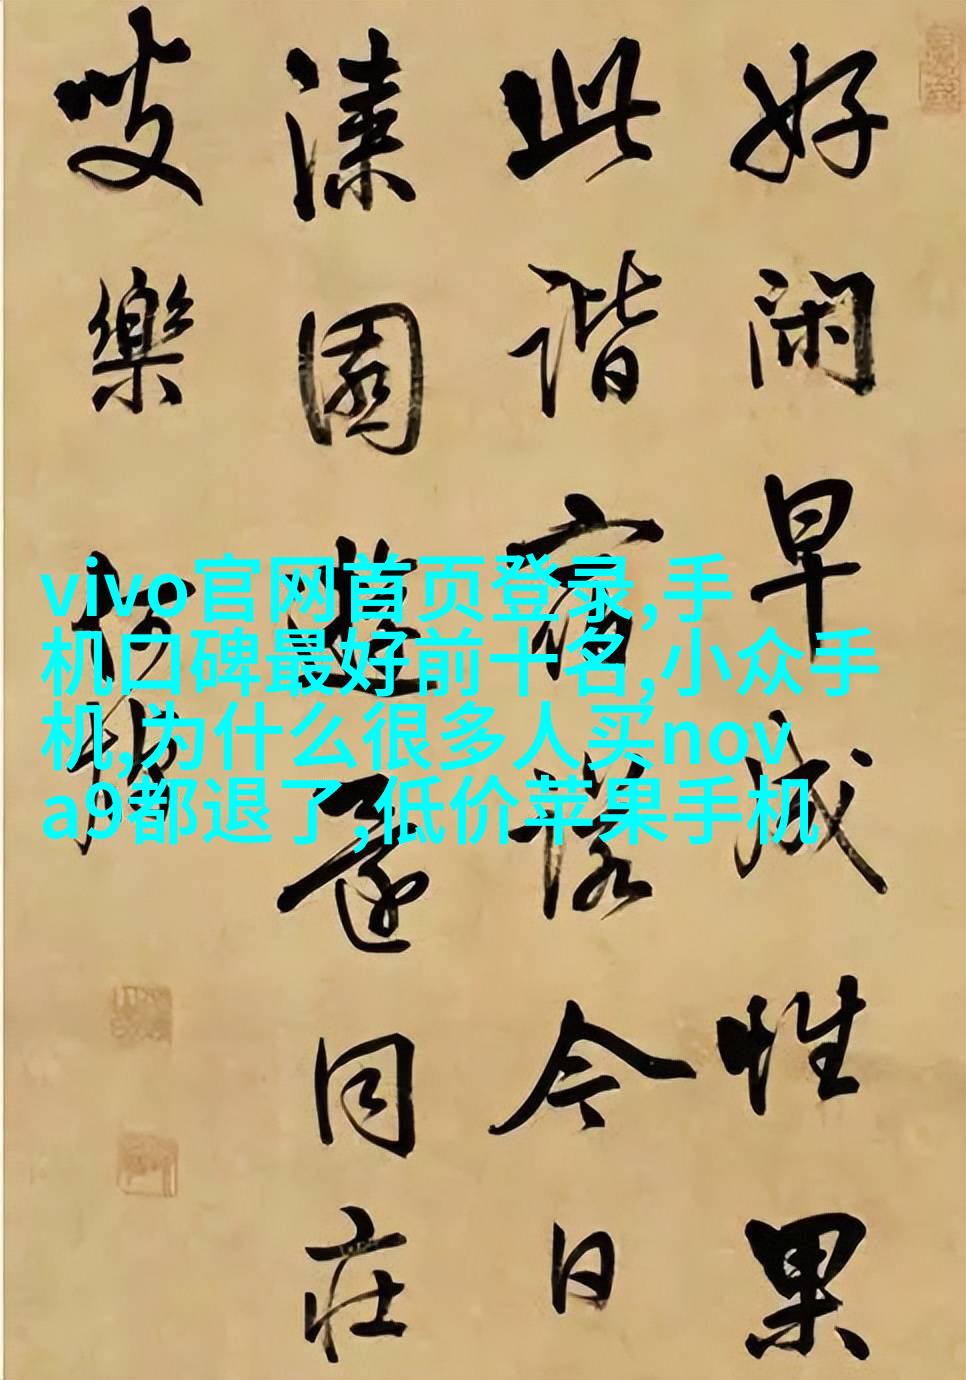 好闲早成性果
此諧宿諾今日
漆園遊還同庄
叟樂
vivo官网首页登录,手
机口碑最好前十名,小众手
机,为什么很多人买nov
a9都退了,低价苹果手机